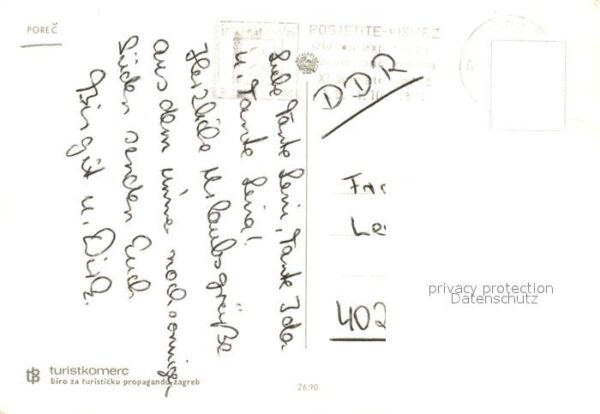 POREČ
POSJETITE
Liebe Tante Leni, Tante Ida
u. Tante Lena!
Herzliche Urlaubsgrüße
aus dem immer noch sonnigen
Süden senden Euch
Birgit u. Dirk.
DDR
402
privacy protection
Datenschutz
turistkomerc
biro za turističku propagandu zagreb
2690